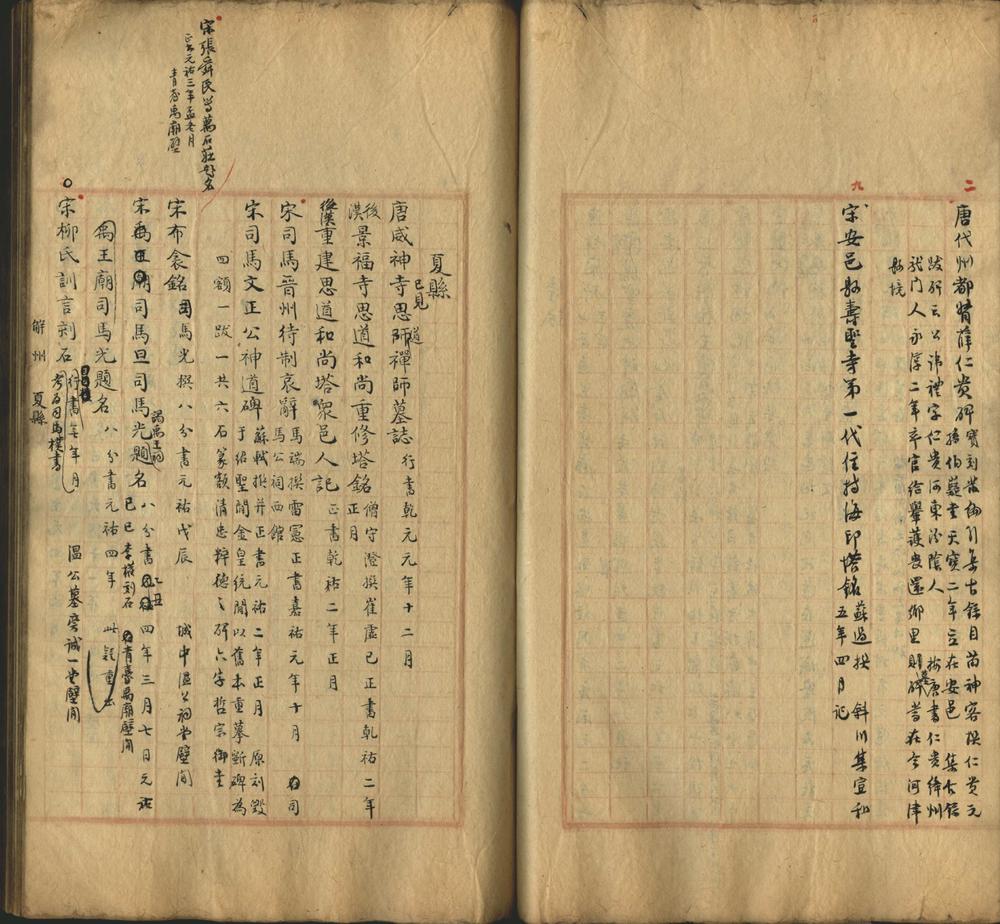 二
唐代州都督薛仁貴碑
寶刻叢編引集古錄目苗神客撰仁貴元
孫伯嶷書天寶二年立在安邑 集古錄
跋碑云公諱禮字仁貴河東汾陰人 按唐書仁貴絳州
龍門人永淳二年卒官給轝護喪還鄉里則碑當在今河津
縣境
九
宋安邑縣壽聖寺第一代住持海印塔銘
蘇過撰 斜川集宣和
五年四月記
夏縣
唐咸神寺思道師禪師墓誌 行書乾元元年十二月
已見
後漢景福寺思道和尚重修塔銘 僧守澄撰崔虛已正書乾祐二年
正月
後漢重建思道和尚塔衆邑人記 正書乾祐二年正月
宋司馬晉州待制哀辭 馬端撰雷憲正書嘉祐元年十月 在司
馬公祠西館
宋司馬文正公神道碑 蘇軾撰并正書元祐二年正月 原刻毀
于紹聖間金皇統間以舊本重摹斷碑為
四額一跋一共六石篆額清忠粹德之碑六字哲宗御書
宋布衾銘 司馬光撰八分書元祐戊辰 城中溫公祠堂壁間
宋張舜民
正書元祐三年孟冬月
青臺禹廟壁
宋禹王廟司馬旦司馬光題名 八分書 元祐四年三月七日
謁禹王祠
己巳 李權刻石 在青臺禹廟壁間
禹王廟司馬光題名 八分書元祐四年 此疑重出
宋柳氏訓言刻石 行書無年月 溫公墓旁誠一堂壁間
考為司馬樸書
解州 夏縣